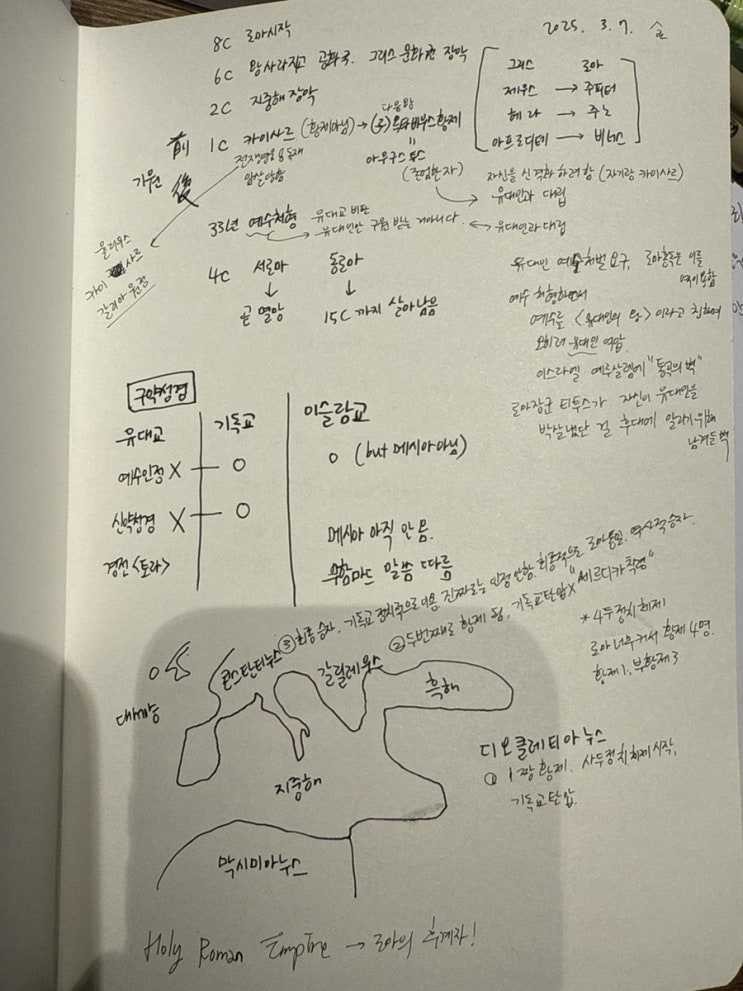 2025. 3. 7. 금
8C 로마시작
6C 왕 사라지고 공화국. 그리스 문화권 장악
2C 지중해 장악
기원 前
1C 카이사르 (황제아님) → (로) 옥타비우스 황제
다음왕
전쟁영웅 & 독재
암살당함
=
아우구스투스
(존엄한 자)
율리우스
카이사르
갈리아 원정
그리스 로마
제우스 → 주피터
헤라 → 주노
아프로디테 → 비너스
자신을 신격화 하려함 (자기랑 카이사르)
유대인과 대립
後
33년 예수처형
유대교 비판
유대인만 구원 받는 게 아니다.
유대인과 대접
4C 서로마 동로마
↓ ↓
곧 멸망 15C 까지 살아남음
유대인 예수처벌 요구, 로마총독은 이를
예수 처형하면서
예수를 <유대인의 왕> 이라고 칭하며
오히려 유대인 억압.
이스라엘 예루살렘에 "통곡의 벽"
로마장군 티투스가 자신이 유대인을
박살냈단 걸 후대에 알리기 위해
남겨둔 벽
구약성경
유대교 기독교 이슬람교
예수인정 X O O (but 메시아아님)
신약성경 X O
메시아 아직 안 옴.
경전 <토라> 무함마드 말씀 따름
③ 최종 승자. 기독교 정치적으로 이용. 진짜로는 인정 안함. 최종적으로 로마통일. 역사적 승자.
② 두번째로 황제 됨, 기독교탄압X "세르디카 칙령"
* 4두정치 체제
로마 너무 커서 황제 4명.
황제1, 부황제3
콘스탄티누스
갈릴레우스
흑해
대서양
지중해
막시미아누스
디오클레티아누스
① 1짱 황제. 사두정치 체제 시작,
기독교 탄압.
Holy Roman Empire → 로마의 후계자!